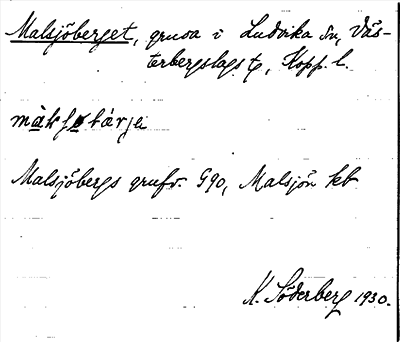 Malsjöberget, gruva i Ludvika sn, Väs-
terbergslags tg, Kopp. l.
Malsjöbergs grufv. G90, Malsjön kb
K. Söderberg 1930.